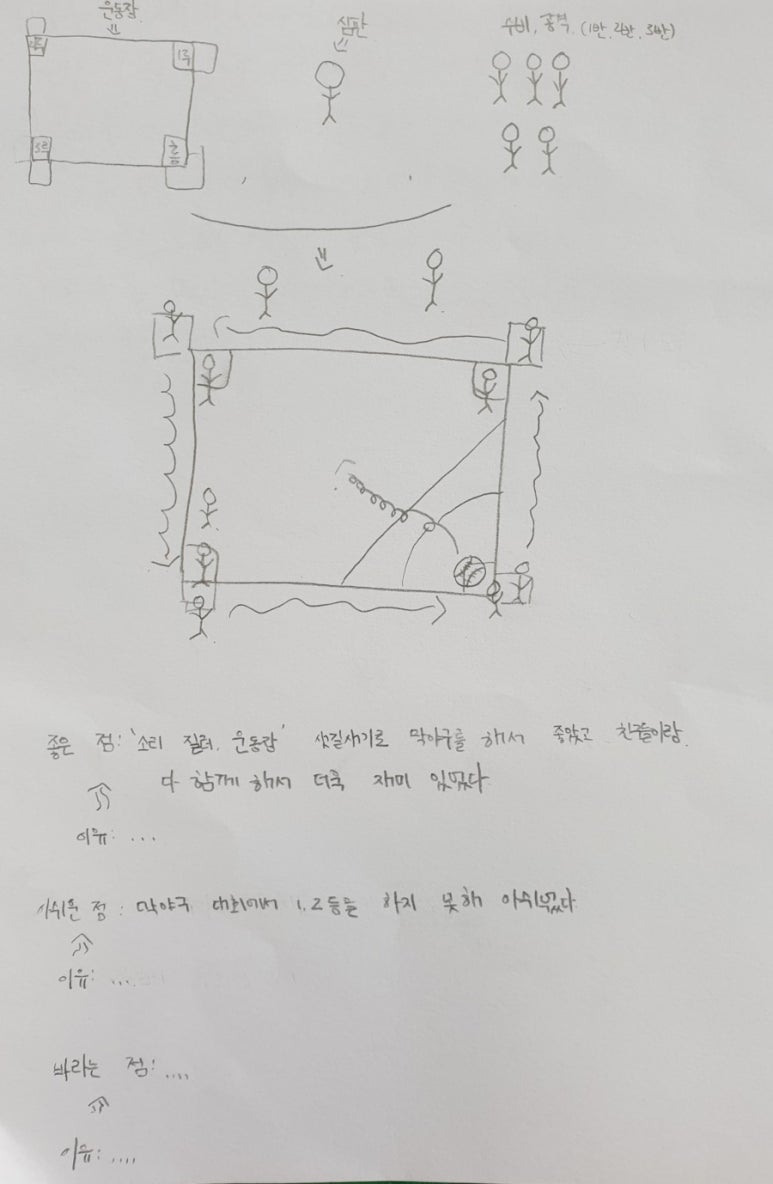 운동장
심판
수비, 공격 (1반, 2반, 3반)
2루
1루
3루
홈
좋은 점: '소리 질러, 운동장' 샛길새기로 막야구를 해서 좋았고 친구들이랑
다 함께 해서 더욱 재미 있었다
이유: ...
아쉬운 점: 막야구 대회에서 1, 2등을 하지 못해 아쉬웠다
이유: ...
바라는 점: ....
이유: ....